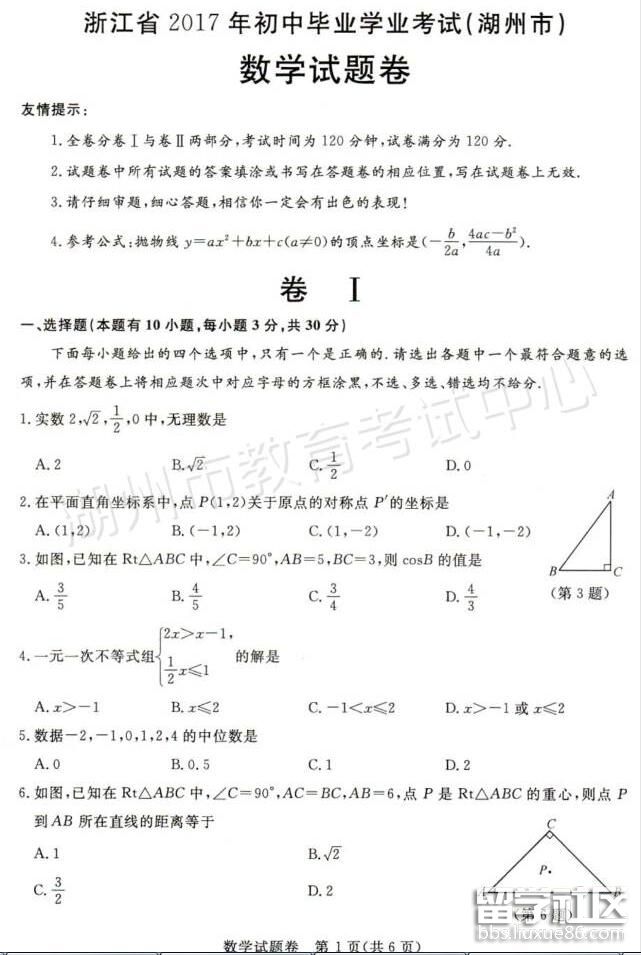 浙江省 2017 年初中毕业学业考试(湖州市)
数学试题卷
友情提示:
1.全卷分卷Ⅰ与卷Ⅱ两部分,考试时间为 120 分钟,试卷满分为 120 分.
2.试题卷中所有试题的答案填涂或书写在答题卷的相应位置,写在试题卷上无效.
3.请仔细审题,细心答题,相信你一定会有出色的表现!
4.参考公式:抛物线 y=ax²+bx+c(a≠0)的顶点坐标是(-b/2a, 4ac-b²/4a).
卷 Ⅰ
一、选择题(本题有 10 小题,每小题 3 分,共 30 分)
下面每小题给出的四个选项中,只有一个是正确的.请选出各题中一个最符合题意的选
项,并在答题卷上将相应题次中对应字母的方框涂黑,不选、多选、错选均不给分.
1.实数 2,√2,1/2,0 中,无理数是
A.2 B.√2 C.1/2 D.0
2.在平面直角坐标系中,点 P(1,2)关于原点的对称点 P′的坐标是
A.(1,2) B.(-1,2) C.(1,-2) D.(-1,-2)
3.如图,已知在 Rt△ABC 中,∠C=90°,AB=5,BC=3,则 cosB 的值是
A.3/5 B.4/5 C.3/4 D.4/3
A
B C
(第 3 题)
4.一元一次不等式组{2x>x-1, 1/2x≤1 的解是
A.x>-1 B.x≤2 C.-1<x≤2 D.x>-1 或 x≤2
5.数据-2,-1,0,1,2,4 的中位数是
A.0 B.0.5 C.1 D.2
6.如图,已知在 Rt△ABC 中,∠C=90°,AC=BC,AB=6,点 P 是 Rt△ABC 的重心,则点 P
到 AB 所在直线的距离等于
A.1 B.√2
C.3/2 D.2
C
P
A B
(第 6 题)
数学试题卷 第 1 页(共 6 页)
湖州市教育考试中心
留学社区
bbs.liuxue86.com